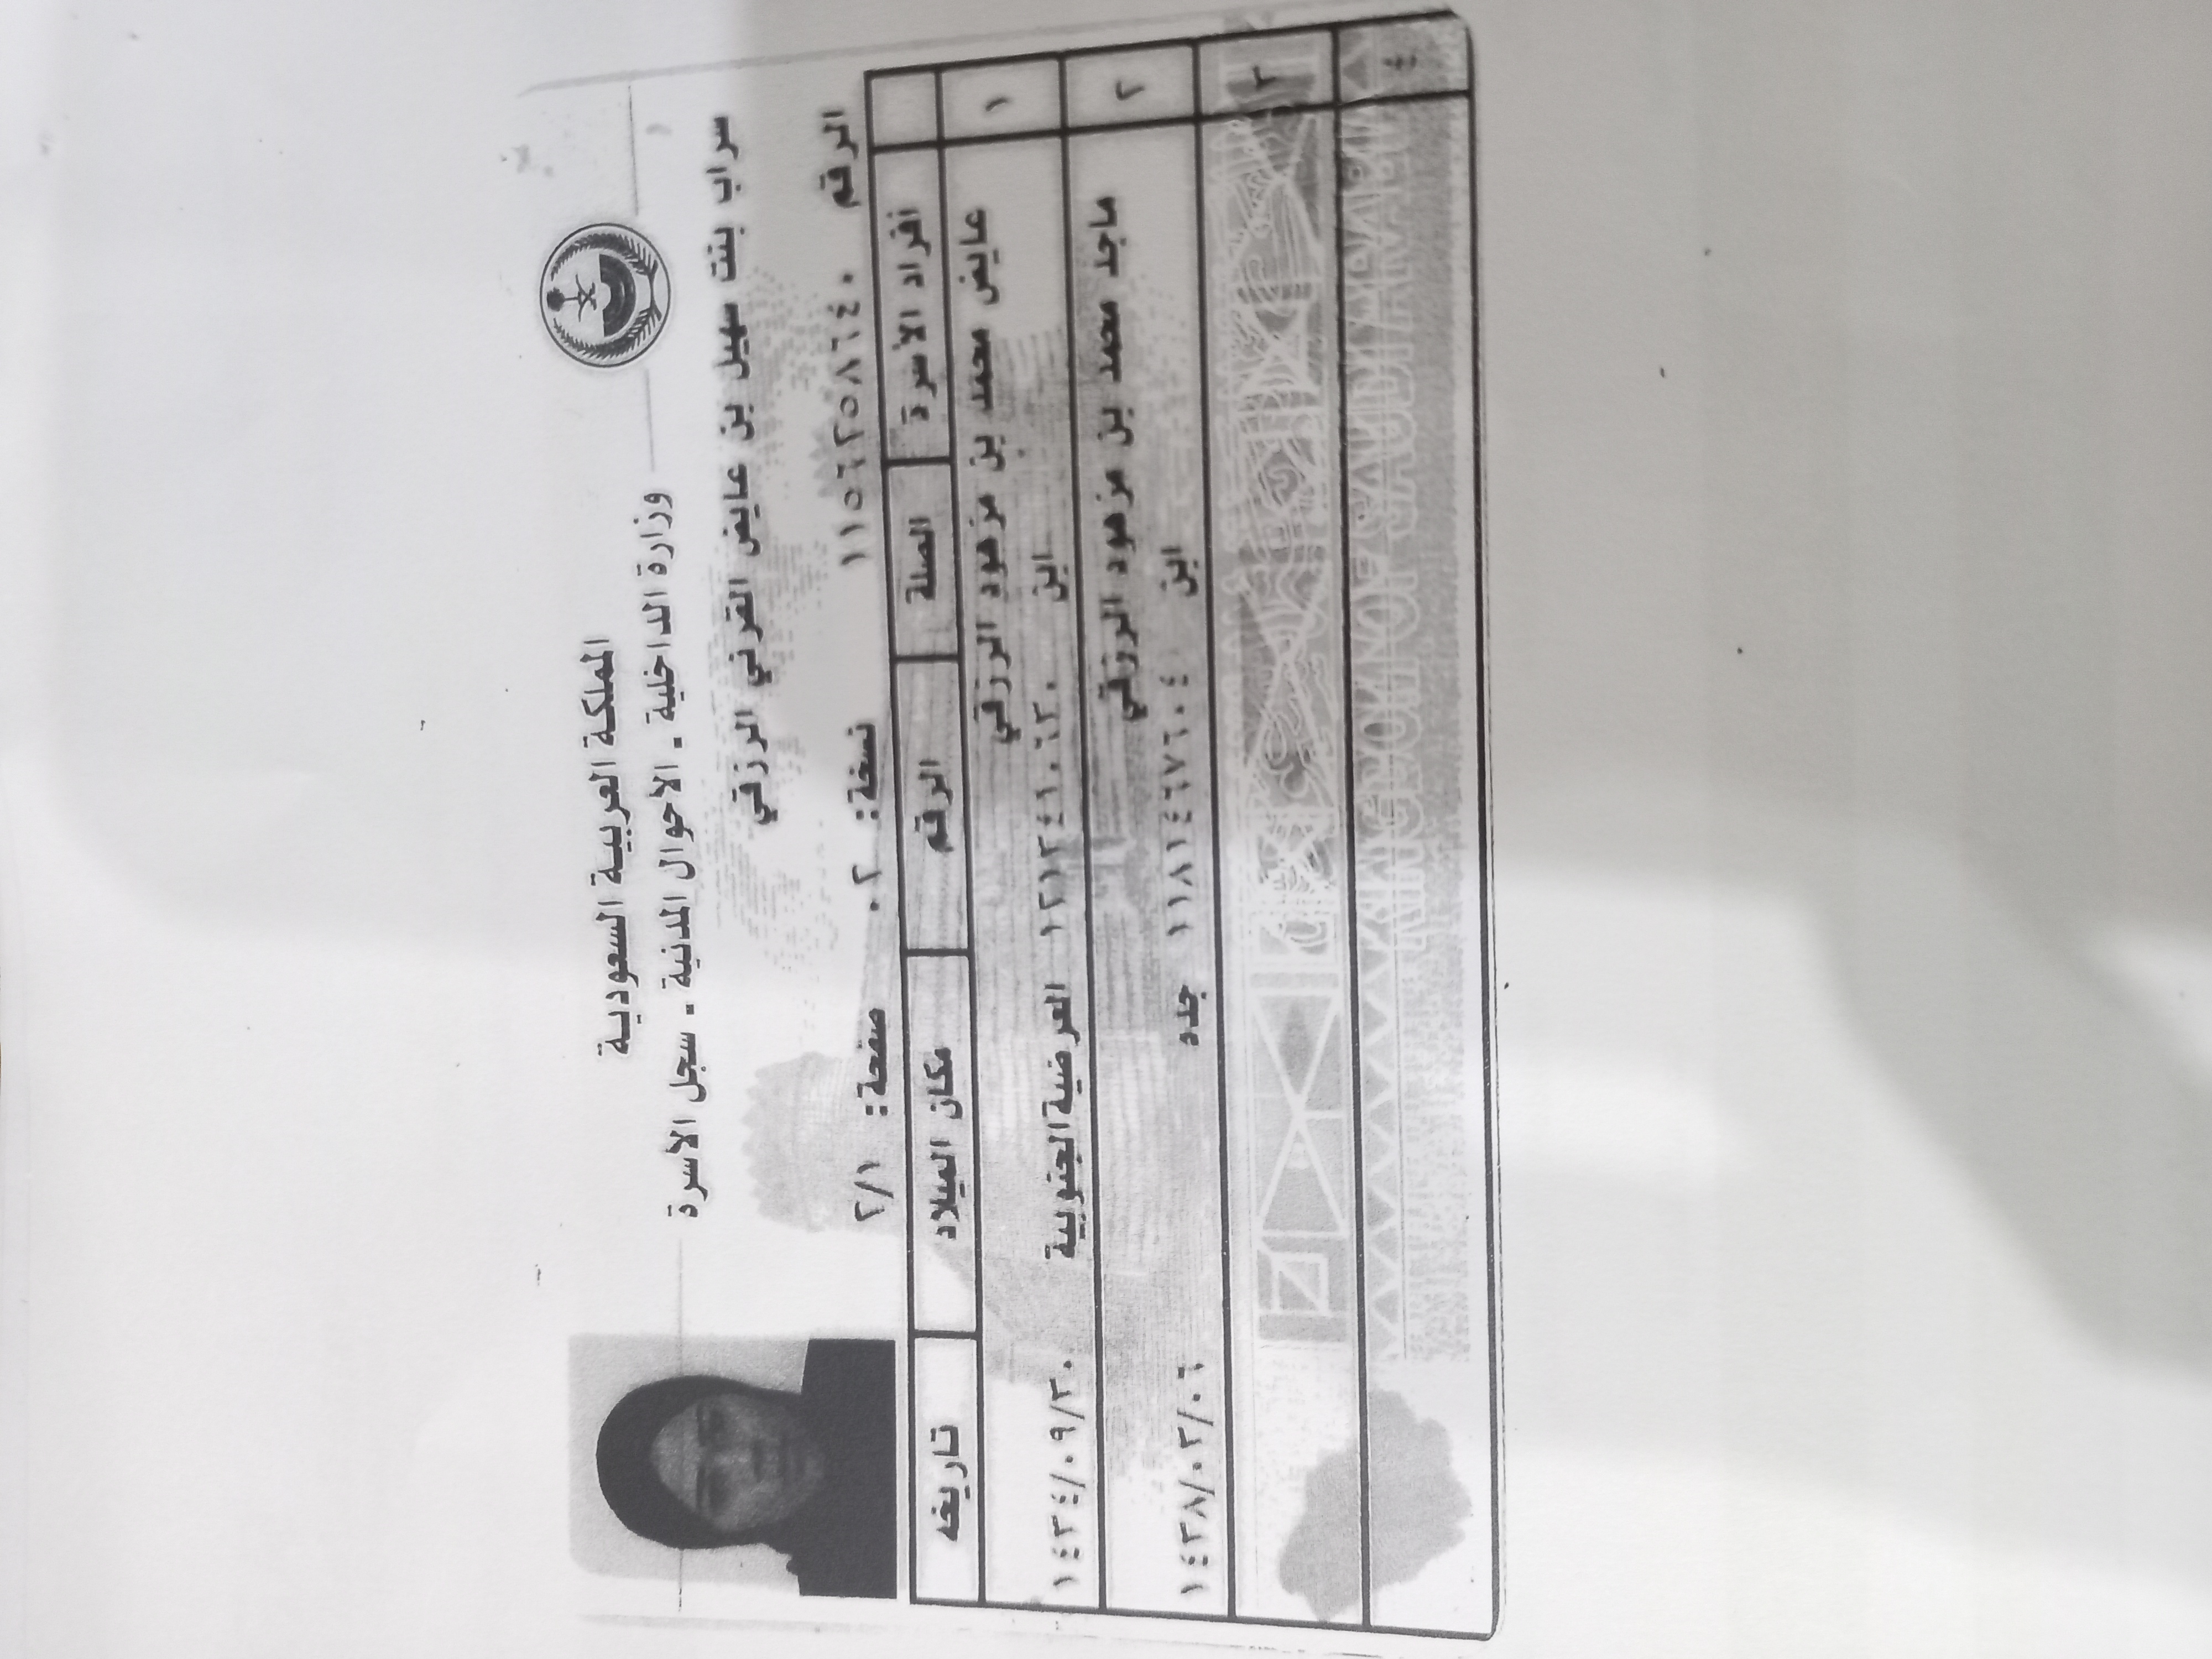 المملكة العربية السعودية
وزارة الداخلية - الاحوال المدنية - سجل الاسرة
سراب بنت سهيل بن عايض القرني الرزقي
الرقم ١١٥٦٢٥٨٦٤٠ نسخة: ٠٢ صفحة: ٢/١
افراد الاسرة الصلة الرقم مكان الميلاد تاريخه
١ عايض محمد بن مزهود الرزقي
ابن ١٢١٢٤١٠٦٢٠ العرضية الجنوبية ١٤٣٤/٠٩/٢٠
٢ ماجد محمد بن مزهود الرزقي
ابن ١١٨١٤٦٧٦٠٤ جده ١٤٢٨/٠٢/٠٦
٣
٤
KINGDOM OF SAUDI ARABIA